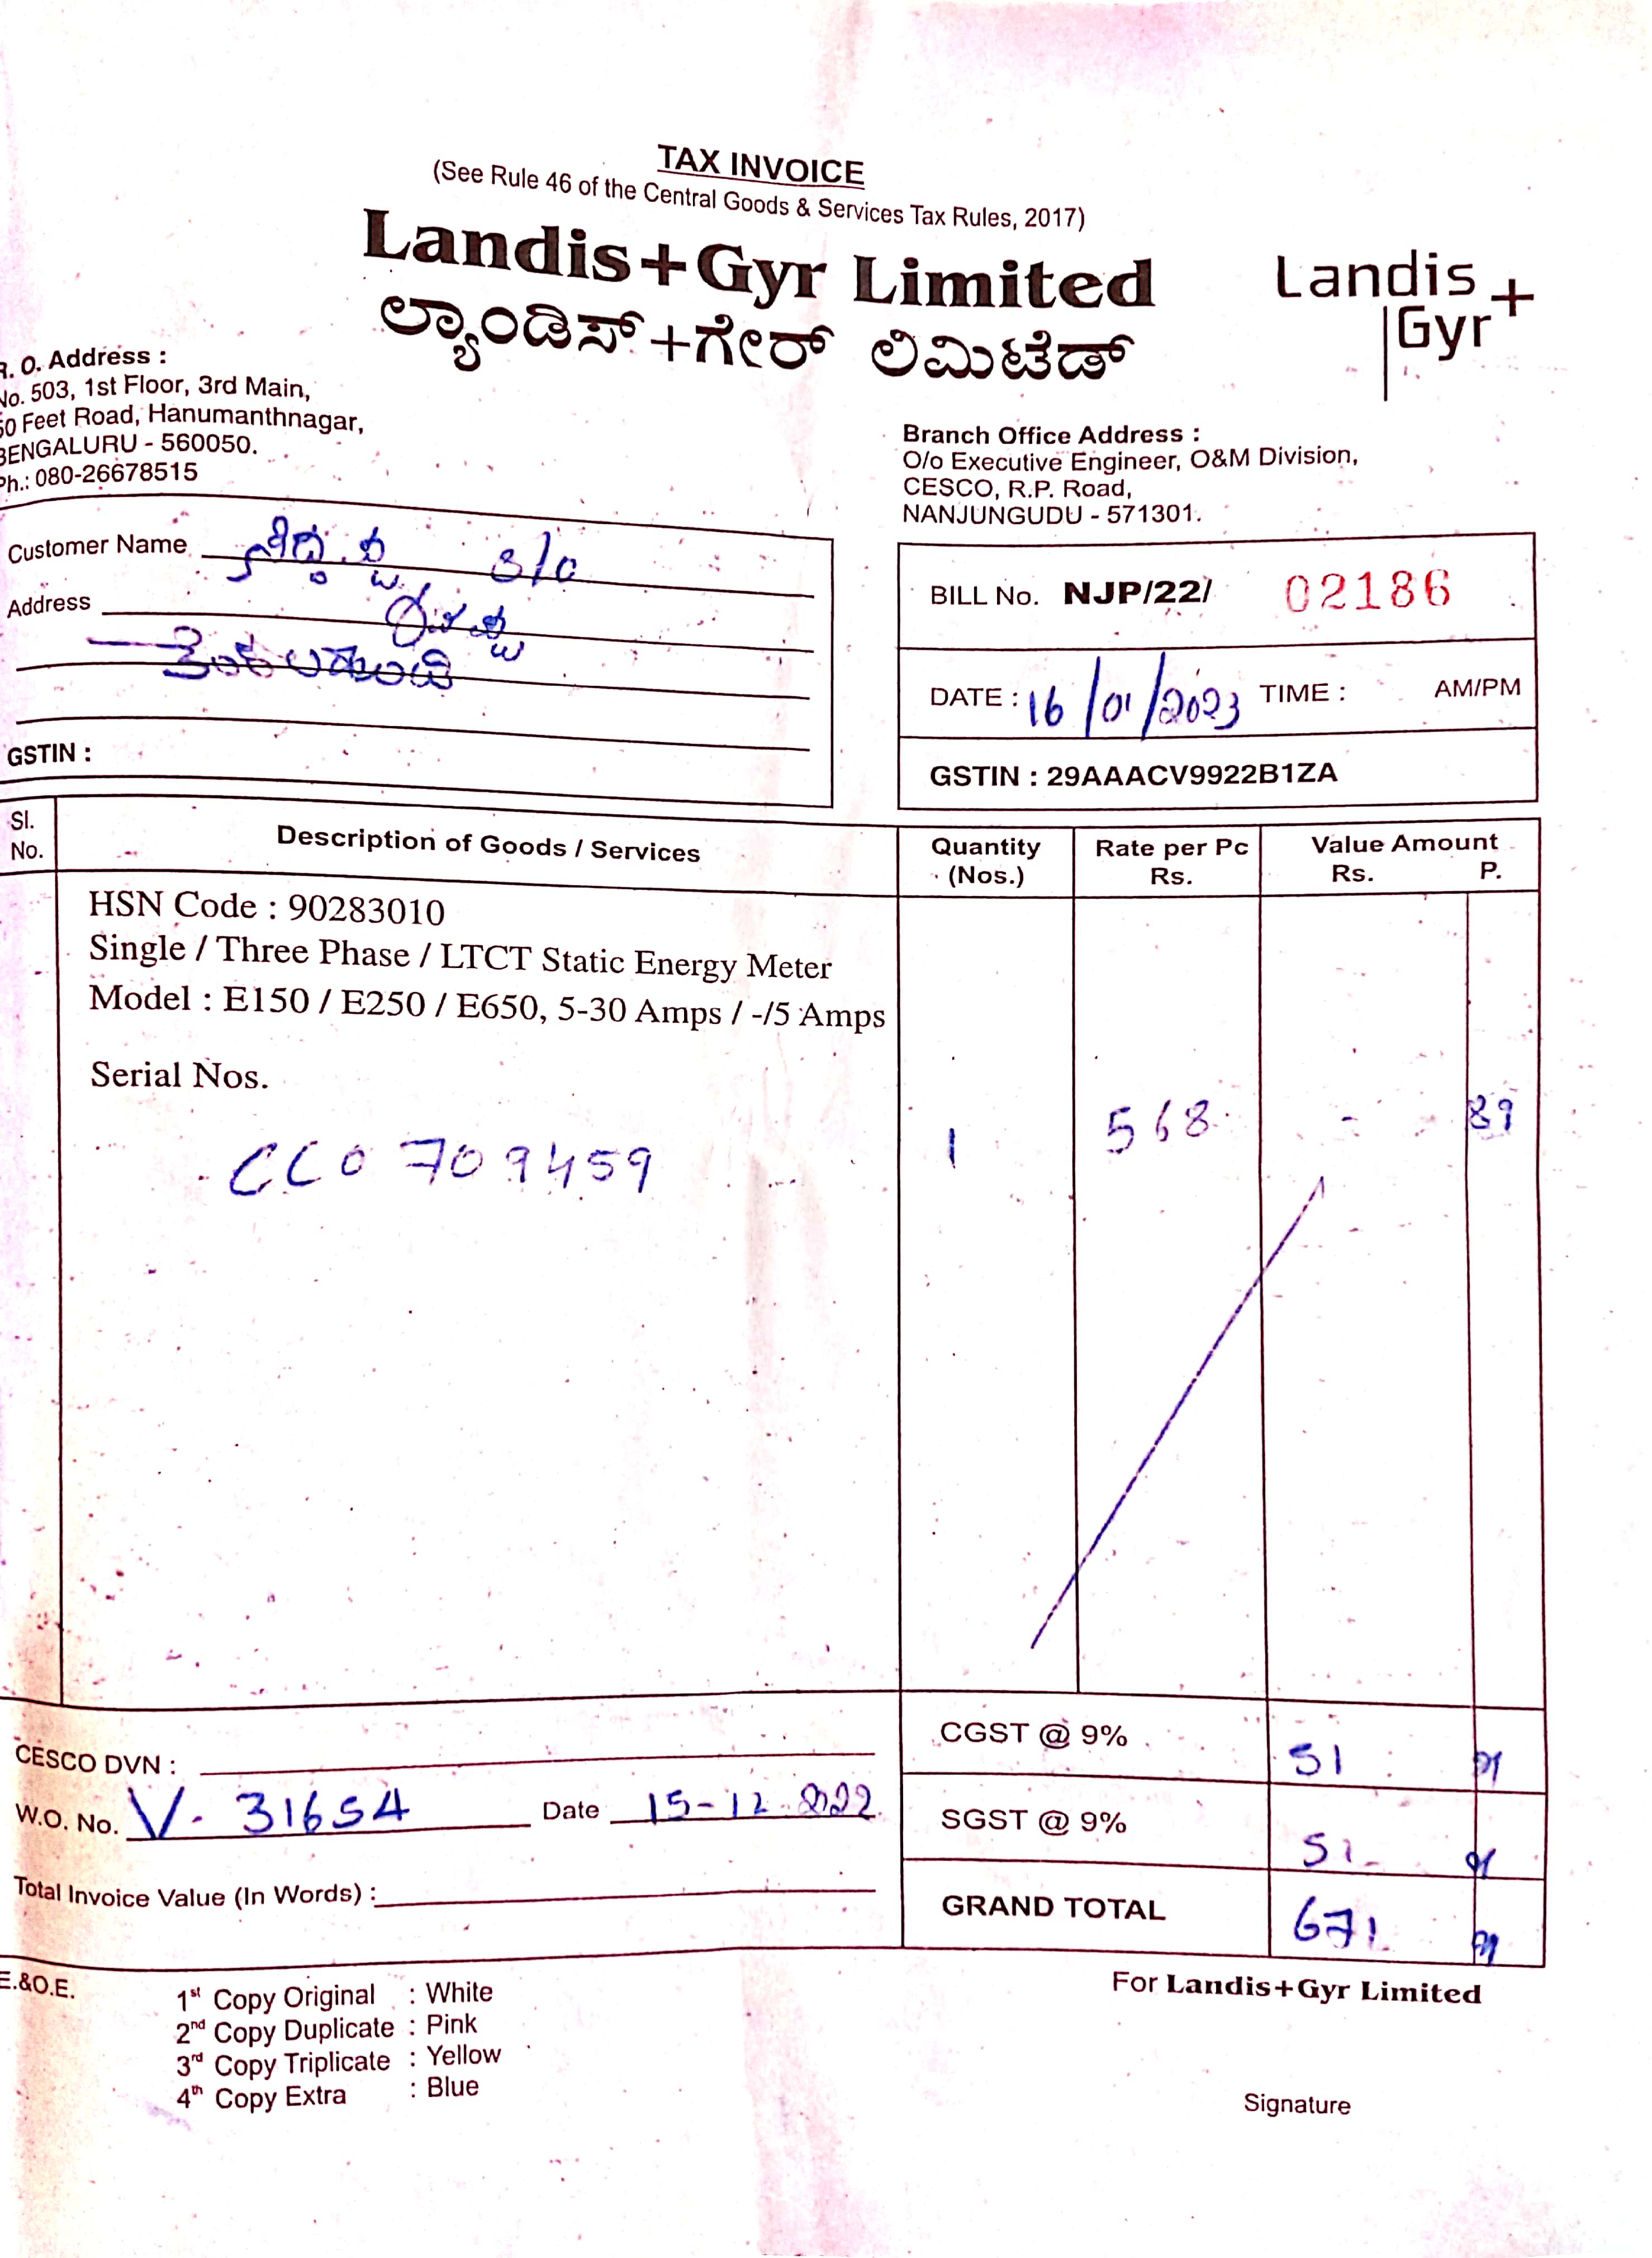 TAX INVOICE
(See Rule 46 of the Central Goods & Services Tax Rules, 2017)
Landis+Gyr Limited
ಲ್ಯಾಂಡಿಸ್+ಗೇರ್ ಲಿಮಿಟೆಡ್
Landis+
Gyr
R. O. Address :
No. 503, 1st Floor, 3rd Main,
50 Feet Road, Hanumanthnagar,
BENGALURU - 560050.
Ph.: 080-26678515
Branch Office Address :
O/o Executive Engineer, O&M Division,
CESCO, R.P. Road,
NANJUNGUDU - 571301.
Customer Name S/o
Address
GSTIN :
BILL No. NJP/22/ 02186
DATE : 16/01/2023 TIME : AM/PM
GSTIN : 29AAACV9922B1ZA
Sl. No. Description of Goods / Services Quantity (Nos.) Rate per Pc Rs. Value Amount Rs. P.
HSN Code : 90283010
Single / Three Phase / LTCT Static Energy Meter
Model : E150 / E250 / E650, 5-30 Amps / -/5 Amps
Serial Nos.
CC0 709459 1 568 - 89
CGST @ 9% 51
SGST @ 9% 51
GRAND TOTAL 671
CESCO DVN :
W.O. No. V- 31654 Date 15-12-2022
Total Invoice Value (In Words) :
E.&O.E.
1st Copy Original : White
2nd Copy Duplicate : Pink
3rd Copy Triplicate : Yellow
4th Copy Extra : Blue
For Landis+Gyr Limited
Signature